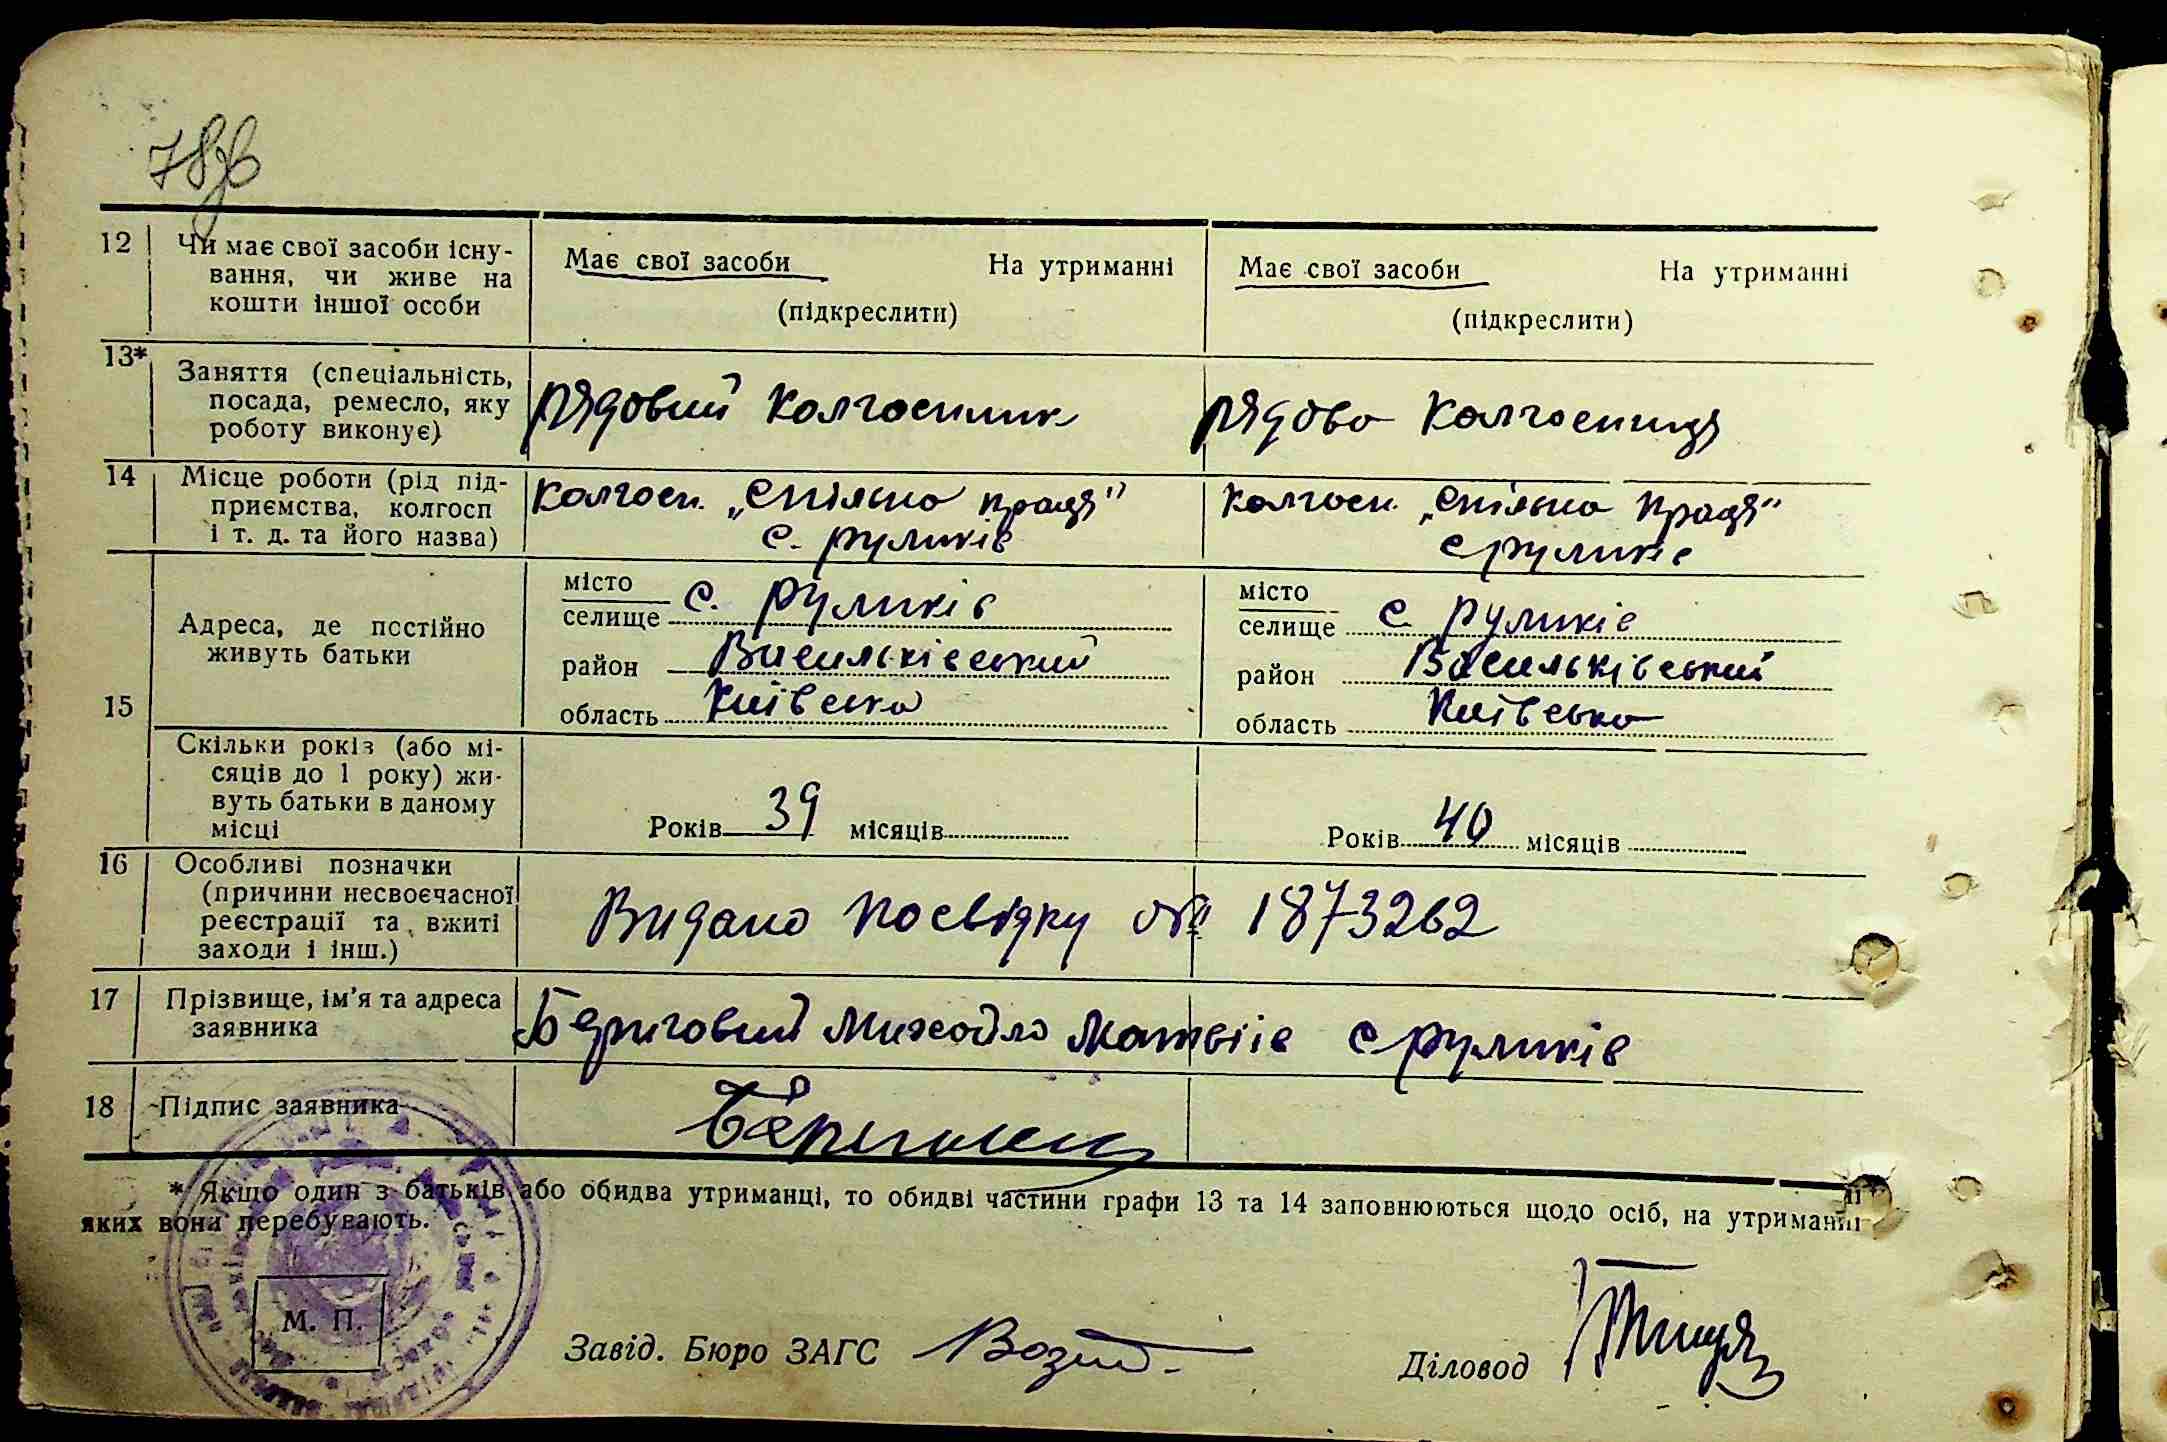 78зв
12 Чи має свої засоби існу-
вання, чи живе на
кошти іншої особи
Має свої засоби На утриманні
(підкреслити)
Має свої засоби На утриманні
(підкреслити)
13* Заняття (спеціальність,
посада, ремесло, яку
роботу виконує)
рядовий колгоспник
рядова колгоспниця
14 Місце роботи (рід під-
приємства, колгосп
і т. д. та його назва)
колгосп. „Спільна праця"
с. Руликів
колгосп. „Спільна праця"
с Руликів
15 Адреса, де постійно
живуть батьки
місто
селище с. Руликів
район Васильківський
область Київська
місто
селище с. Руликів
район Васильківський
область Київська
Скільки років (або мі-
сяців до 1 року) жи-
вуть батьки в даному
місці
Років 39 місяців
Років 40 місяців
16 Особливі позначки
(причини несвоєчасної
реєстрації та вжиті
заходи і інш.)
Видано посвідку № 1873262
17 Прізвище, ім'я та адреса
заявника
Береговий Михайло Матвіїв с Руликів
18 Підпис заявника
* Якщо один з батьків або обидва утриманці, то обидві частини графи 13 та 14 заповнюються щодо осіб, на утриманні
яких вони перебувають.
М. П.
Завід. Бюро ЗАГС
Діловод